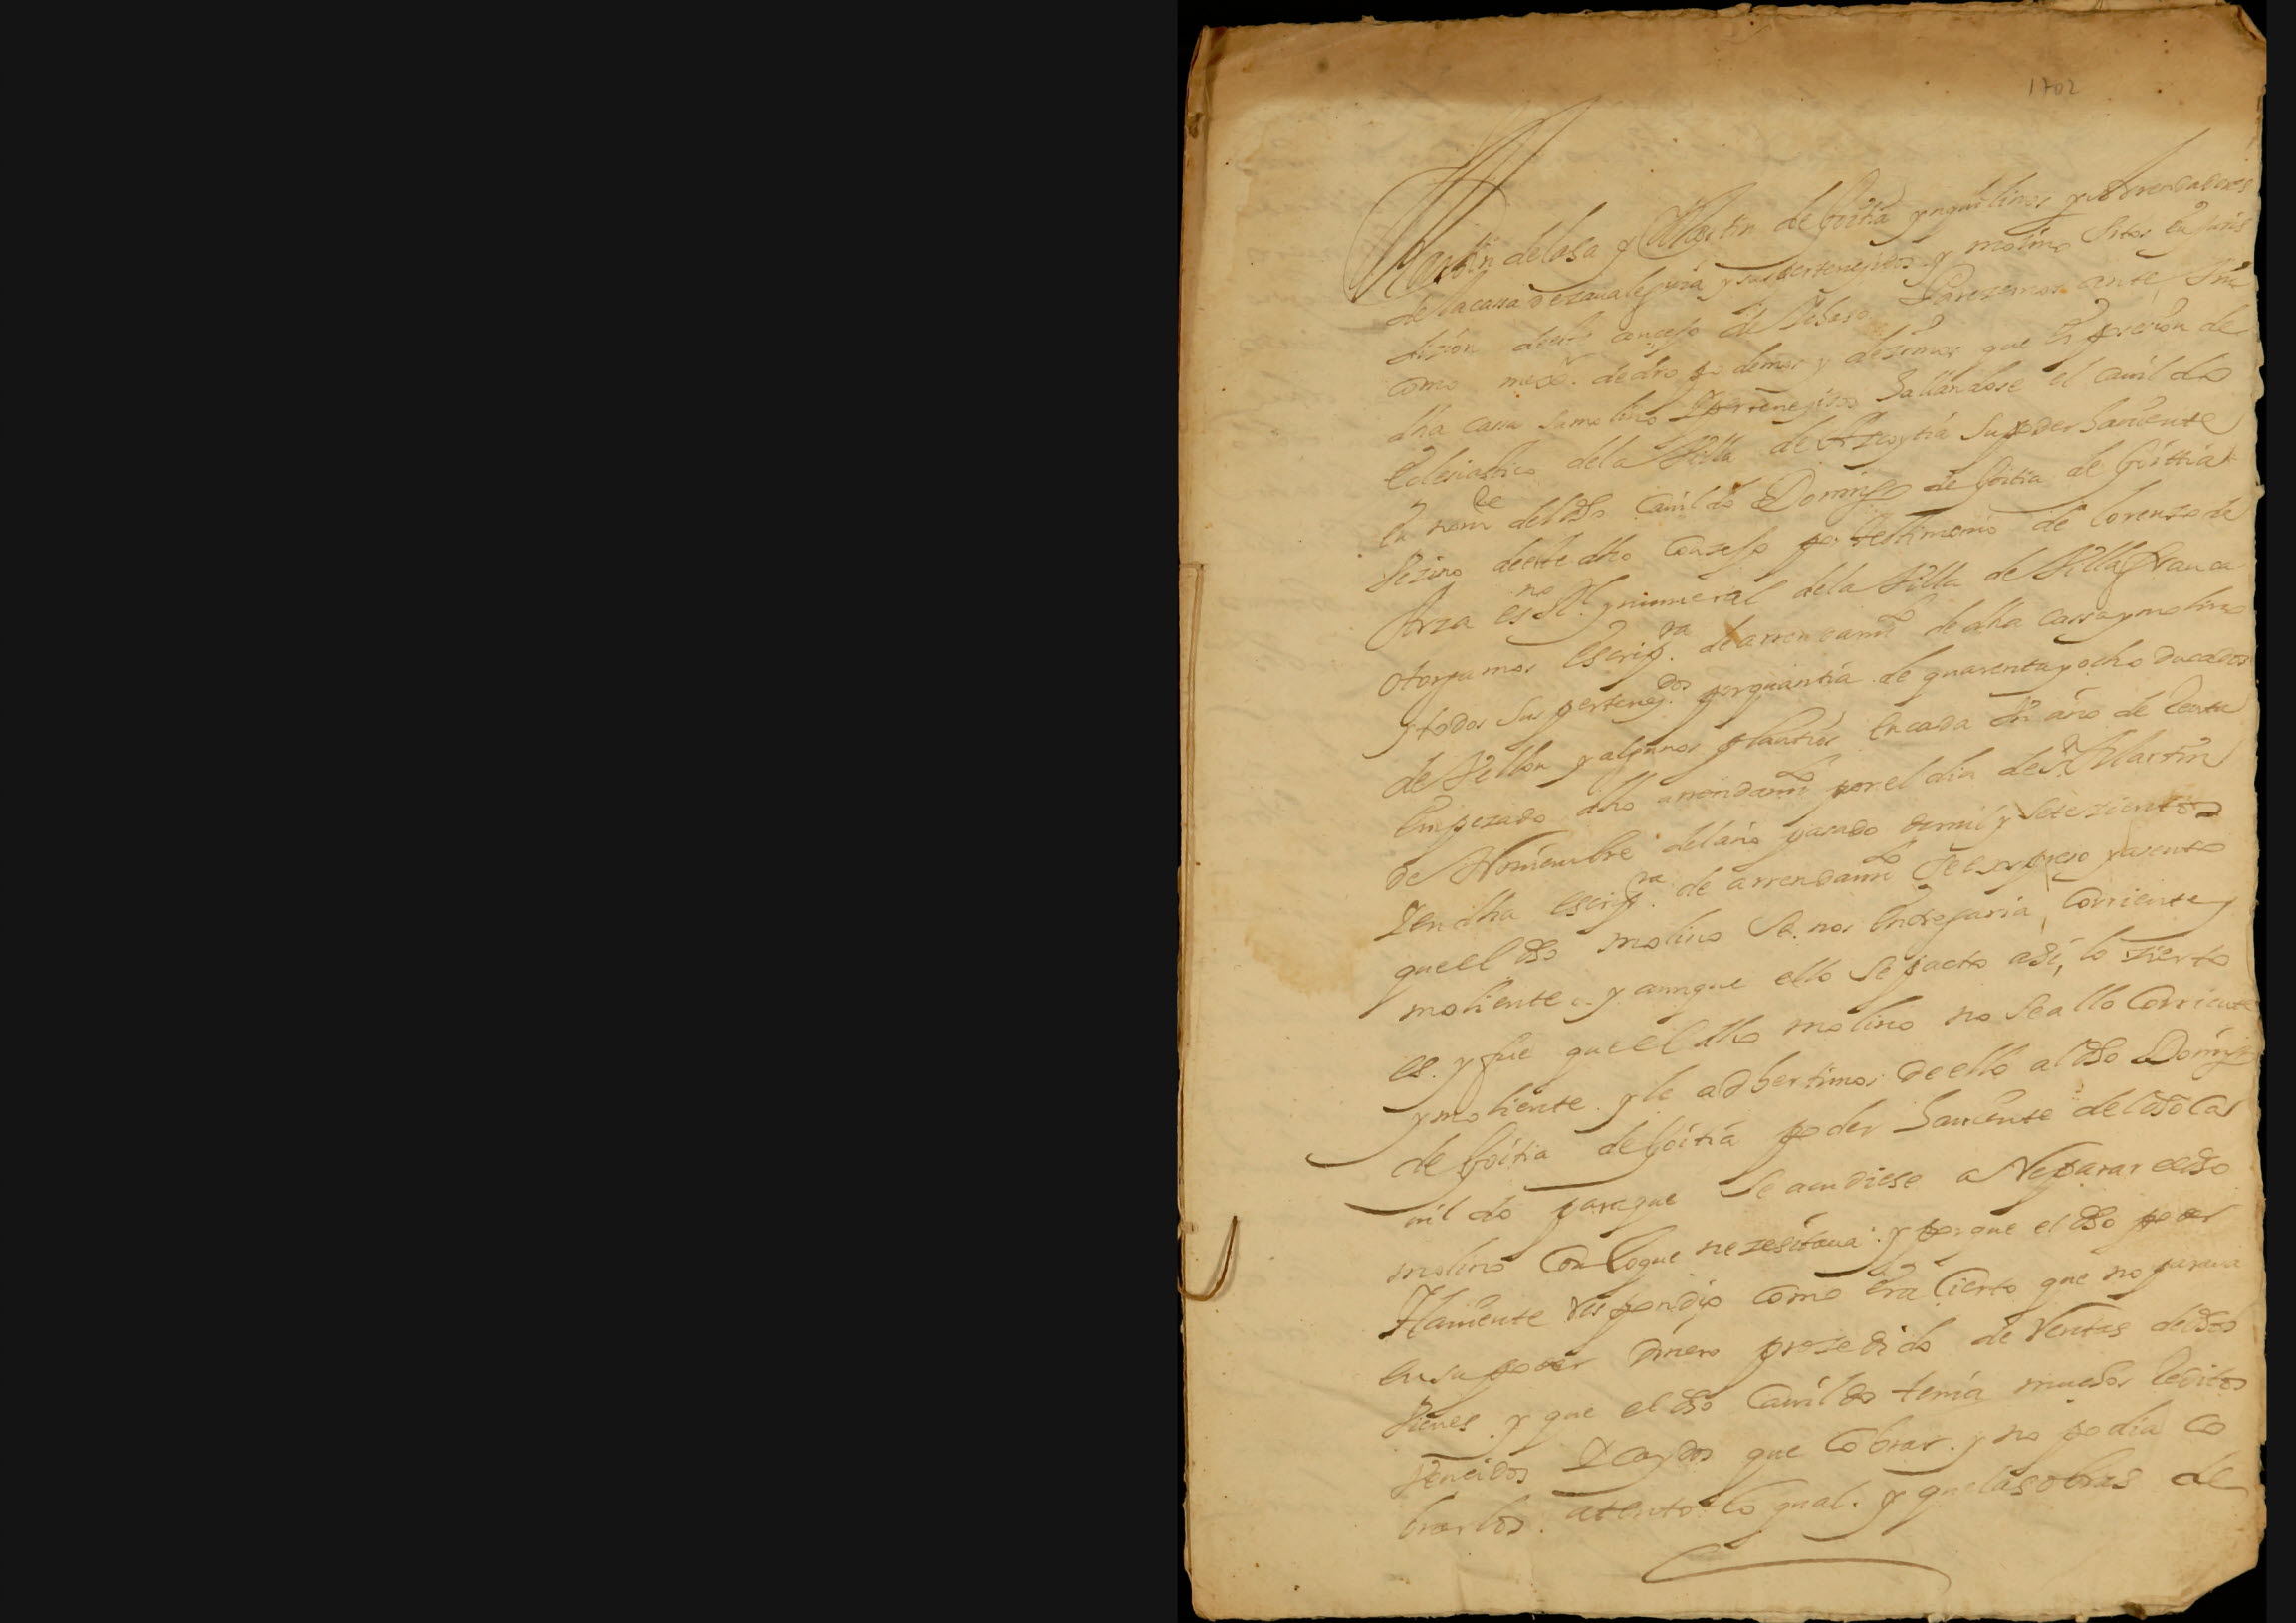 1702
Martin de lasa y Martin de Goitia ynquilinos y arrendadores
de la cassa de zaualeguia y sus pertenezidos y molino sitos en Juris
dizion deeste conzejo de Veasa Parezemos ante Vm
como mexor de dro podemos y dezimos que en posesion de
dha cassa su molino y pertenezidos hallandose el Cauildo
eclesiastico de la Villa de Azcoytia su poder hauiente
en nomre del dho Cauildo Domingo de Goitia de Goittia
Vezino deeste dho Conzejo por testimonio de lorenzo de
Arza esno Rl. y numeral de la Villa de Villafranca
otorgamos escripra. de arrendamto de dha cassa y molino
y todos sus pertenezdos. por quantia de quarenta y ocho ducados
de Vellon y algunos plantios en cada Vn año de Renta
empezado dho arrendamto por el dia de Sn Martin
de Nouiembre del año pasado de mil y setezientos
Y en dha escripra. de arrendamto se expreso y asento
que el dho molino se nos entregaria, Corriente y
moliente. y aunque ello se pacto asi, lo zierto
es. y fue que el dho molino no se allo Corriente
y moliente. y le adbertimos de ello al dho Doming
de Goitia de Goitia poder hauiente del dho Ca
uildo para que se acudiese a Reparar el dho
molino Con lo que nezesitaua. y porque el dho poder
Hauiente respondio como era Cierto que no paraua
en su poder dinero prozedido de Rentas de dhos
Vienes. y que el dho Cauildo tenia muchos Reditos
Vencidos Y Caydos que Cobrar. y no podia Co
brarlos. atento lo qual. y que las obras de